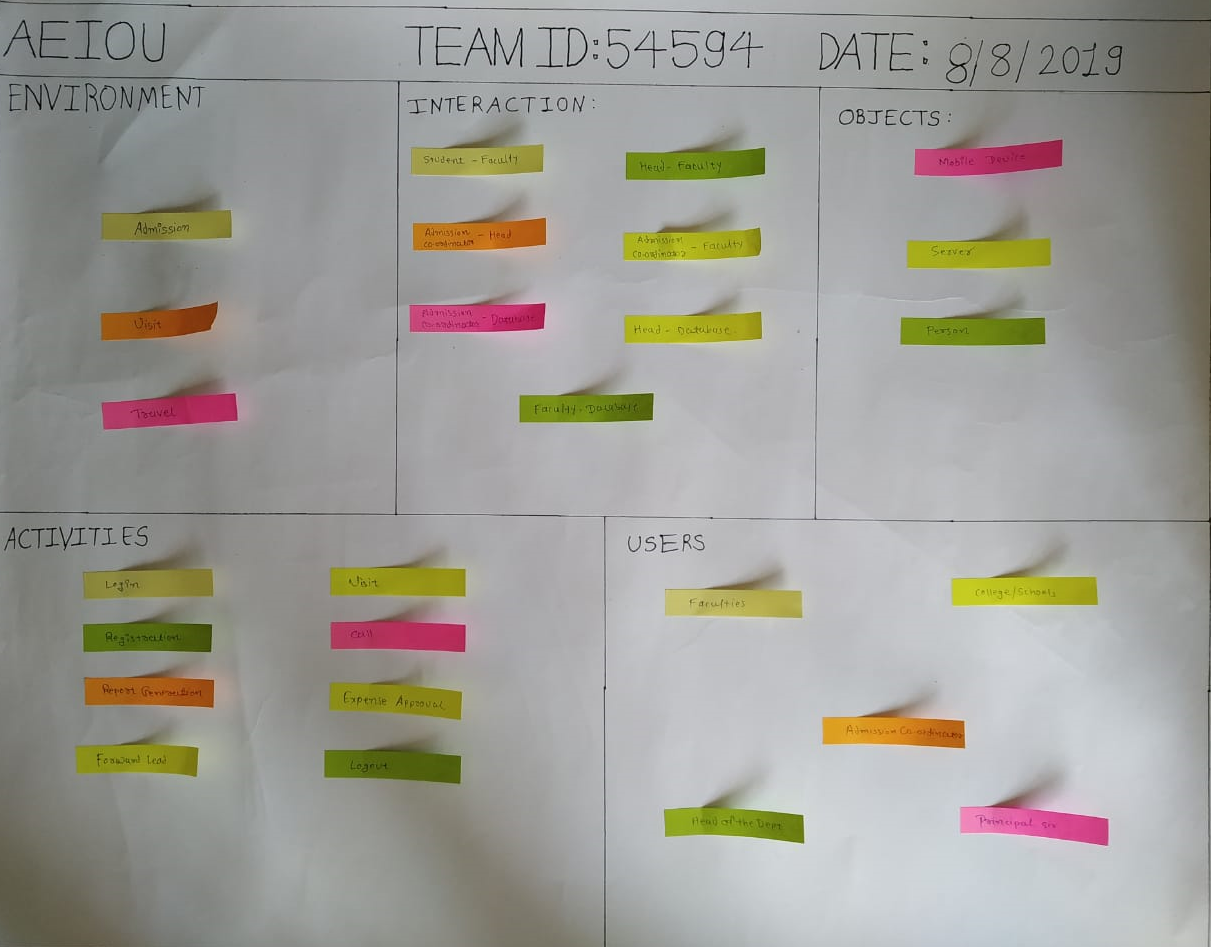 AEIOU TEAM ID:54594 DATE: 8/8/2019
ENVIRONMENT
Admission
Visit
Travel
INTERACTION:
Student - Faculty
Head - Faculty
Admission
Co-ordinator - Head
Admission
Co-ordinator - Faculty
Admission
Co-ordinator - Database
Head - Database
Faculty - Database
OBJECTS:
Mobile Device
Server
Person
ACTIVITIES
Login
Registration
Report Generation
Forward Lead
Visit
Call
Expense Approval
Logout
USERS
Faculties
College/Schools
Admission Co-ordinator
Head of the Dept
Principal sir